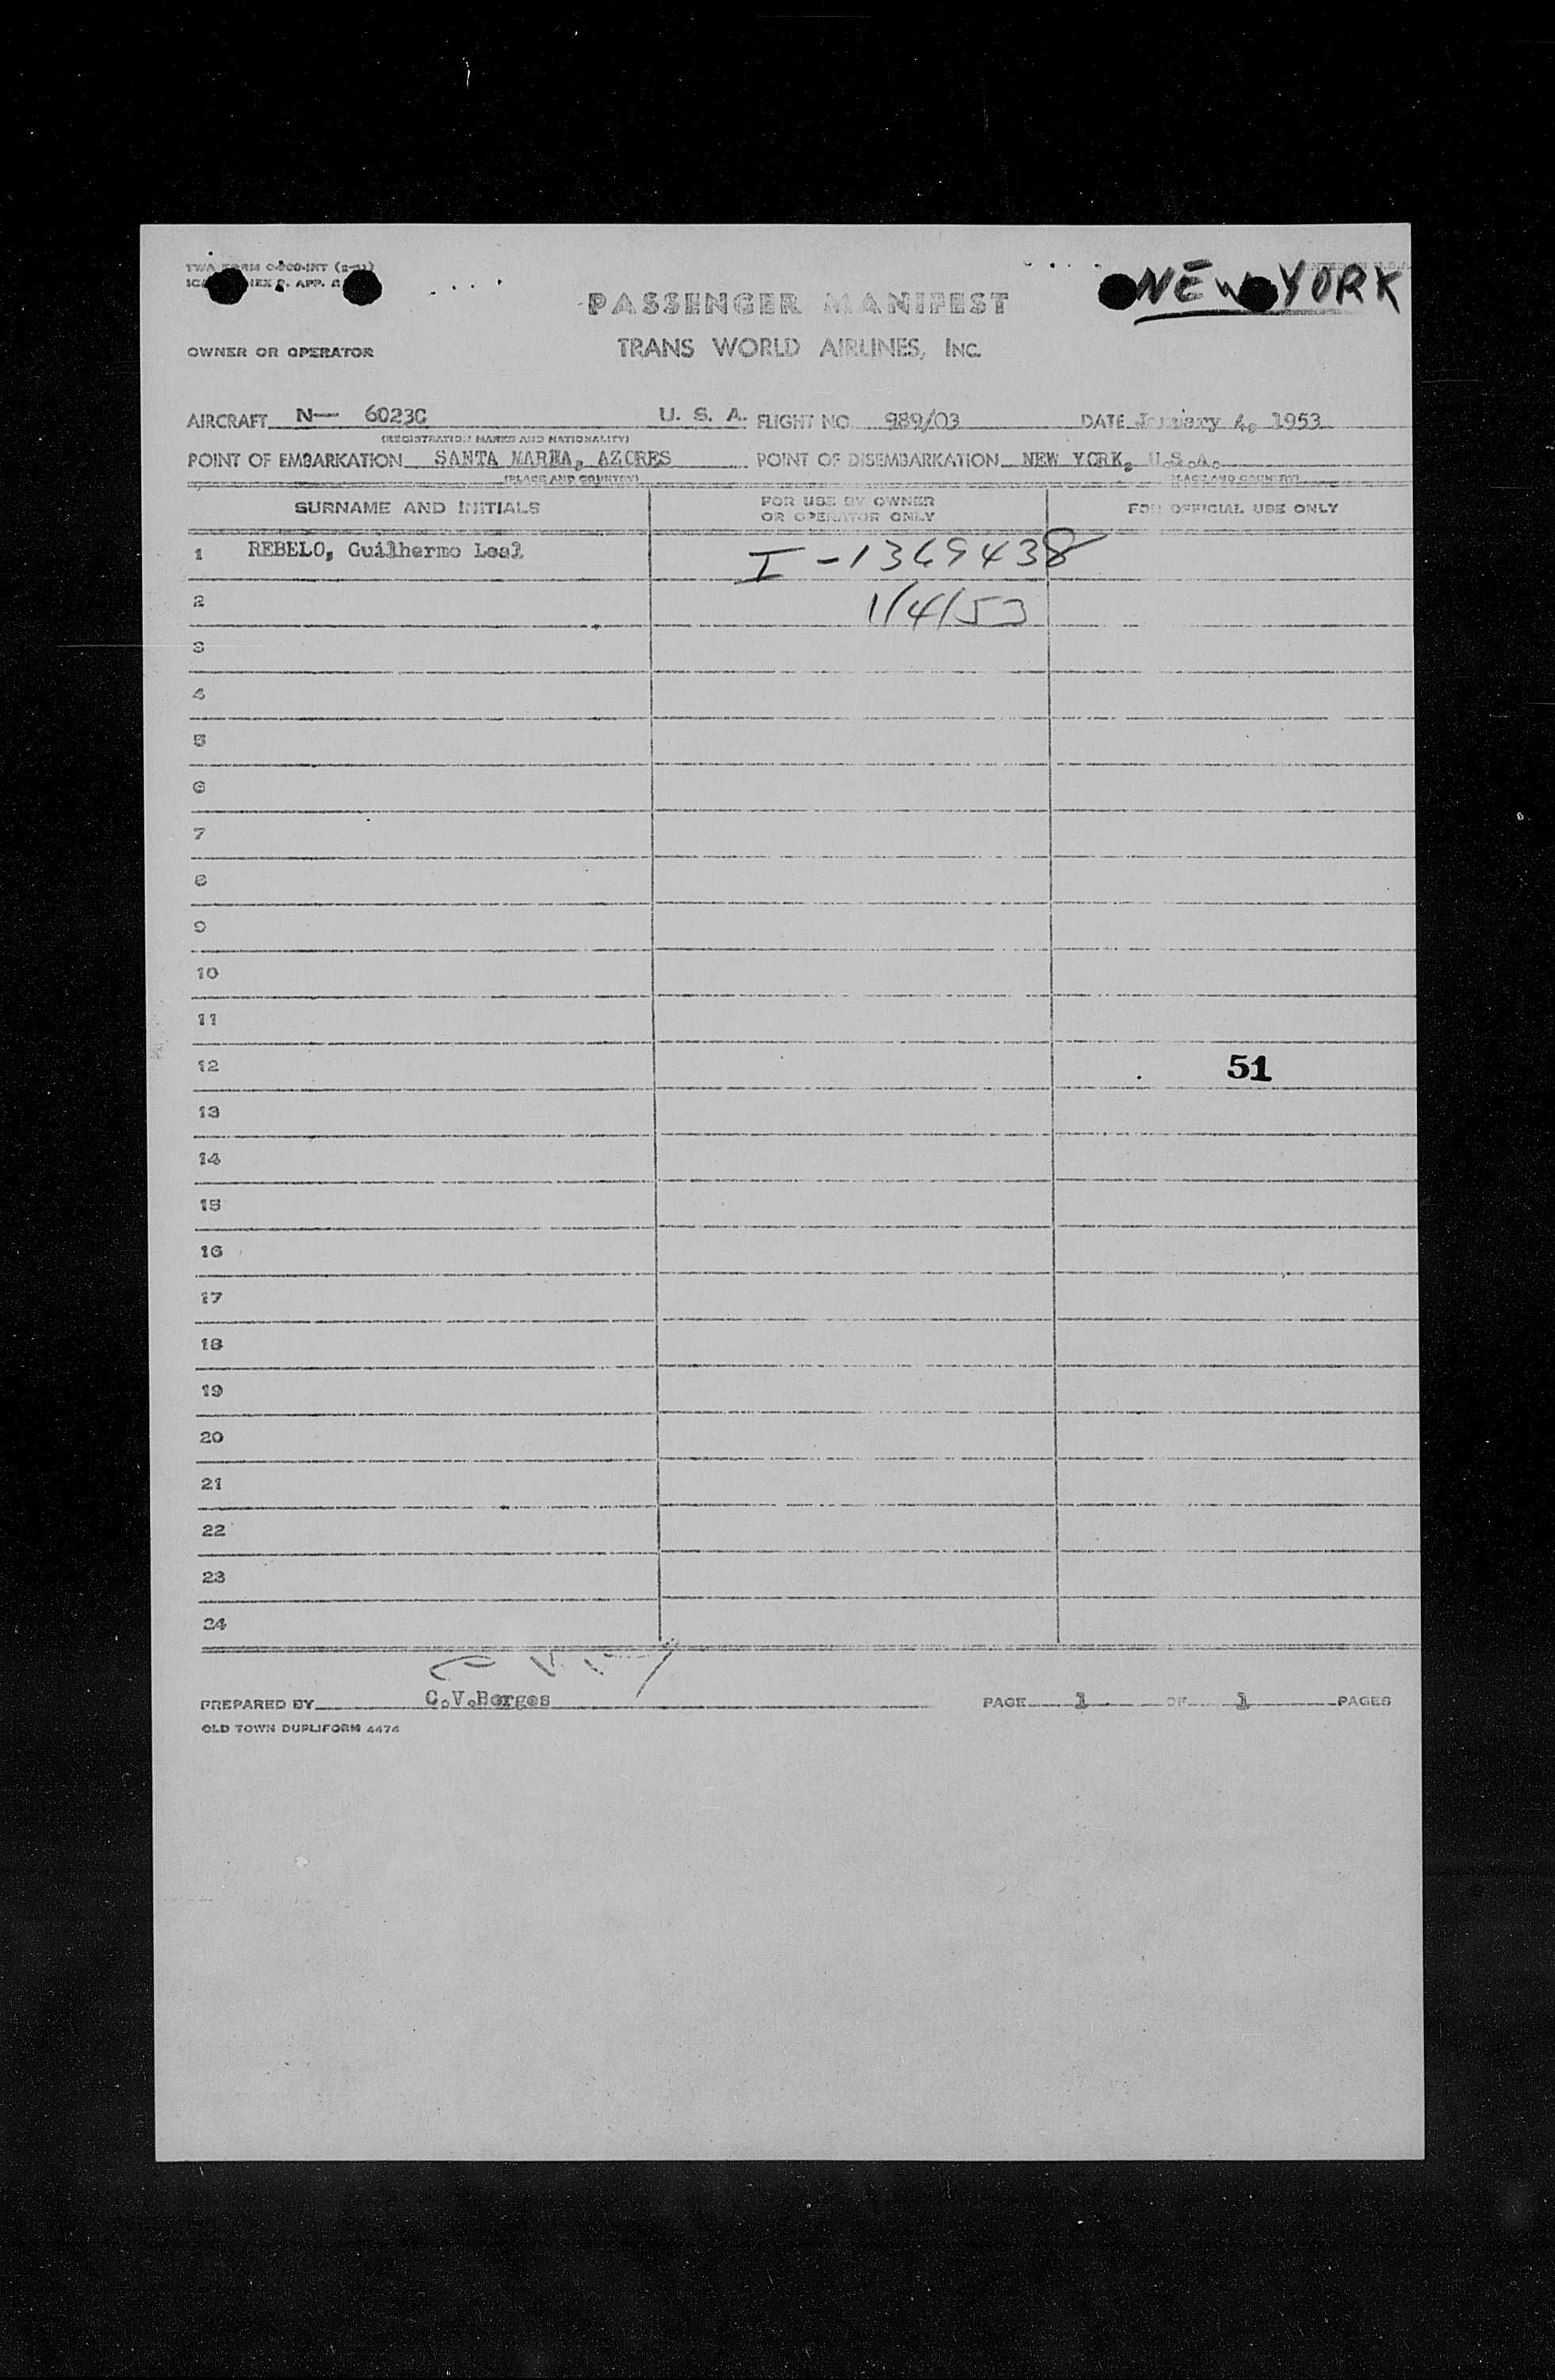 TWA FORM
NEW YORK
PASSENGER MANIFEST
OWNER OR OPERATOR
TRANS WORLD AIRLINES, INC.
AIRCRAFT N— 6023C U. S. A. FLIGHT NO 989/03 DATE January 4, 1953
(REGISTRATION MARKS AND NATIONALITY)
POINT OF EMBARKATION SANTA MARIA, AZORES POINT OF DISEMBARKATION NEW YORK, U.S.A.
(PLACE AND COUNTRY) (PLACE AND COUNTRY)
SURNAME AND INITIALS FOR USE BY OWNER OR OPERATOR ONLY FOR OFFICIAL USE ONLY
1 REBELO, Guilhermo Leal I-1369438
2 1/4/53
3
4
5
6
7
8
9
10
11
12 51
13
14
15
16
17
18
19
20
21
22
23
24
PREPARED BY C.V.Borges PAGE 1 OF 1 PAGES
OLD TOWN DUPLIFORM 4474